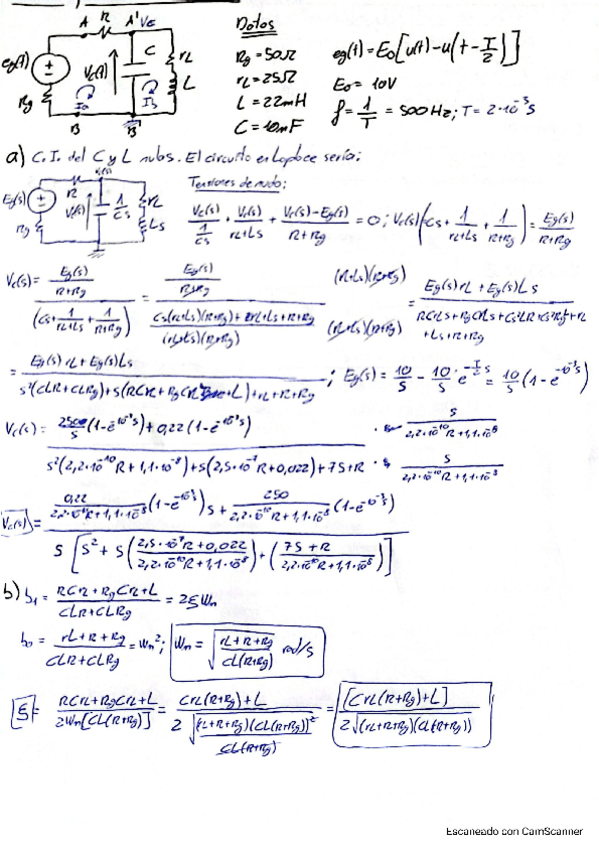 A R A' Vc
Datos
eg(t)
Rg
Vc(t)
C
rL
L
B
B'
Rg = 50Ω
eg(t) = E0[u(t) - u(t - T/2)]
rL = 25Ω
E0 = 10V
L = 22mH
f = 1/T = 500Hz; T = 2·10^-3 s
C = 10mF
a) C.I. del C y L nulas. El circuito en Laplace sería:
Eg(s)
R
Rg
Vc(s)
1/Cs
rL
Ls
Tensiones de nudo:
Vc(s)/(1/Cs) + Vc(s)/(rL+Ls) + (Vc(s)-Eg(s))/(R+Rg) = 0; Vc(s)(Cs + 1/(rL+Ls) + 1/(R+Rg)) = Eg(s)/(R+Rg)
Vc(s) = (Eg(s)/(R+Rg))/(Cs + 1/(rL+Ls) + 1/(R+Rg)) = (Eg(s)/(R+Rg))/((Cs(rL+Ls)(R+Rg)+rL+Ls+R+Rg)/((rL+Ls)(R+Rg))) (rL+Ls)(R+Rg) (rL+Ls)(R+Rg) = (Eg(s)rL + Eg(s)Ls)/
+Ls+R+Rg
= (Eg(s)rL + Eg(s)Ls)/(s²(CLR+CLRg)+s(RCrL+RgCrL+L)+rL+R+Rg); Eg(s) = 10/s - 10/s · e^(-T/2 s) = 10/s (1-e^(-10^-3 s))
Vc(s) = (250/s (1-e^(-10^-3 s)) + 0,22(1-e^(-10^-3 s)))/(s²(2,2·10^-10 R+1,1·10^-8)+s(2,5·10^-7 R+0,022)+75+R) · s/(2,2·10^-10 R+1,1·10^-8) · s/(2,2·10^-10 R+1,1·10^-8)
Vc(s) = (0,22/(2,2·10^-10 R+1,1·10^-8) (1-e^(-10^-3 s))s + 250/(2,2·10^-10 R+1,1·10^-8) (1-e^(-10^-3 s)))/(s[s² + s((2,5·10^-7 R+0,022)/(2,2·10^-10 R+1,1·10^-8)) + ((75+R)/(2,2·10^-10 R+1,1·10^-8))])
b) b1 = (RCrL+RgCrL+L)/(CLR+CLRg) = 2ξWn
b0 = (rL+R+Rg)/(CLR+CLRg) = Wn²; Wn = √((rL+R+Rg)/(CL(R+Rg))) rad/s
ξ = (RCrL+RgCrL+L)/(2Wn[CL(R+Rg)]) = (CrL(R+Rg)+L)/(2 √((rL+R+Rg)(CL(R+Rg))²/(CL(R+Rg)))) = [CrL(R+Rg)+L]/(2√((rL+R+Rg)(CL(R+Rg))))
Escaneado con CamScanner